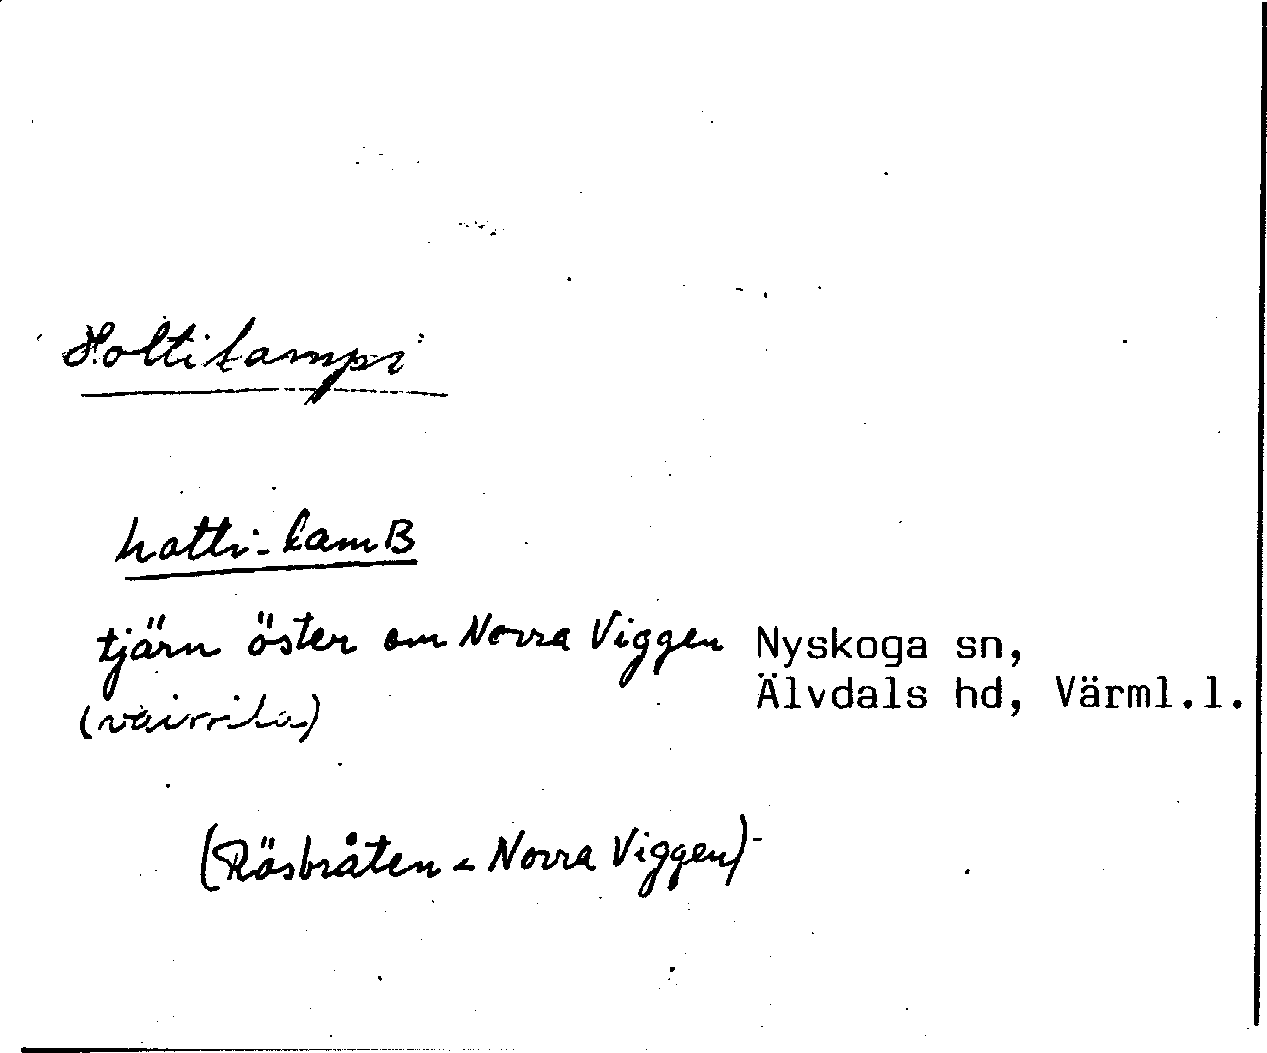 Holtilampi
hotti-lamB
tjärn öster om Norra Viggen Nyskoga sn,
Älvdals hd, Värml.l.
(Räsbråten - Norra Viggen)